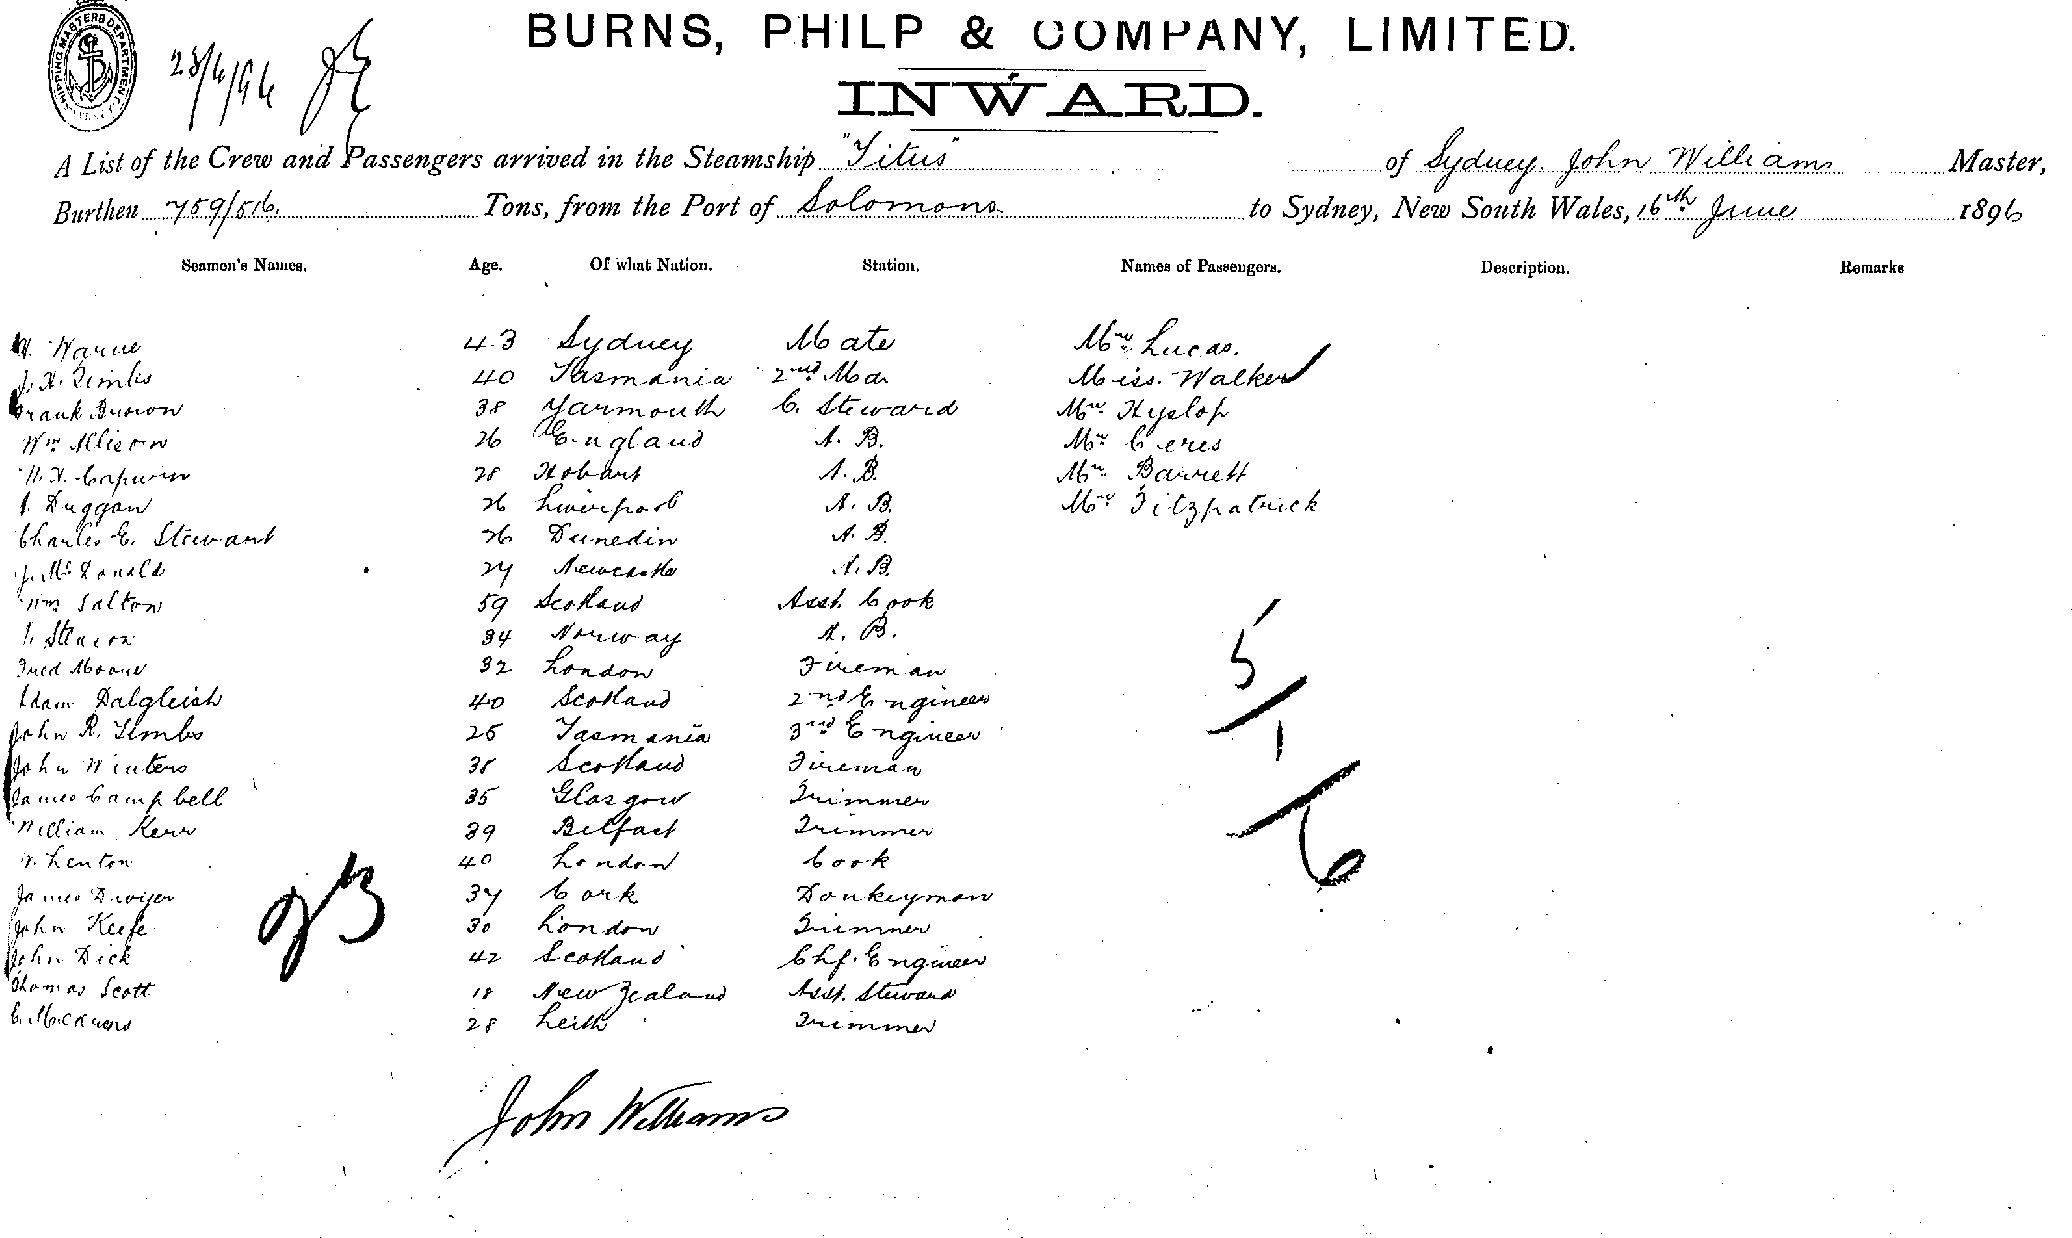 SHIPPING MASTERS DEPARTMENT
23/6/96
BURNS, PHILP & COMPANY, LIMITED.
INWARD.
A List of the Crew and Passengers arrived in the Steamship "Titus" of Sydney. John Williams Master,
Burthen 759/516. Tons, from the Port of Solomons to Sydney, New South Wales, 16th June 1896
Seamen's Names. Age. Of what Nation. Station. Names of Passengers. Description. Remarks
Warne 43 Sydney Mate Lucas.
J. H. 40 Tasmania 2nd Ma Miss. Walker
Frank Brown 38 Yarmouth C. Steward Mr Hyslop
Wm Allison 26 England A. B. Mr Ceres
28 Hobart A. B. Mr Barrett
Duggan 26 Liverpool A. B. Mr Fitzpatrick
Charles E. Stewart 26 Dunedin A. B.
J. McDonald 27 Newcastle A. B.
Wm Salton 59 Scotland Asst. Cook
34 Norway A. B.
Fred Moore 32 London Fireman
Adam Dalgleish 40 Scotland 2nd Engineer
John R. Timbs 25 Tasmania 3rd Engineer
John Winters 38 Scotland Fireman
James Campbell 35 Glasgow Trimmer
William Kerr 39 Belfast Trimmer
Lenton 40 London Cook
James Dwyer 37 Cork Donkeyman
John Keefe 30 London Trimmer
John Dick 42 Scotland Chf. Engineer
Thomas Scott 18 New Zealand Asst. Steward
28 Leith Trimmer
5
1
6
23
John Williams